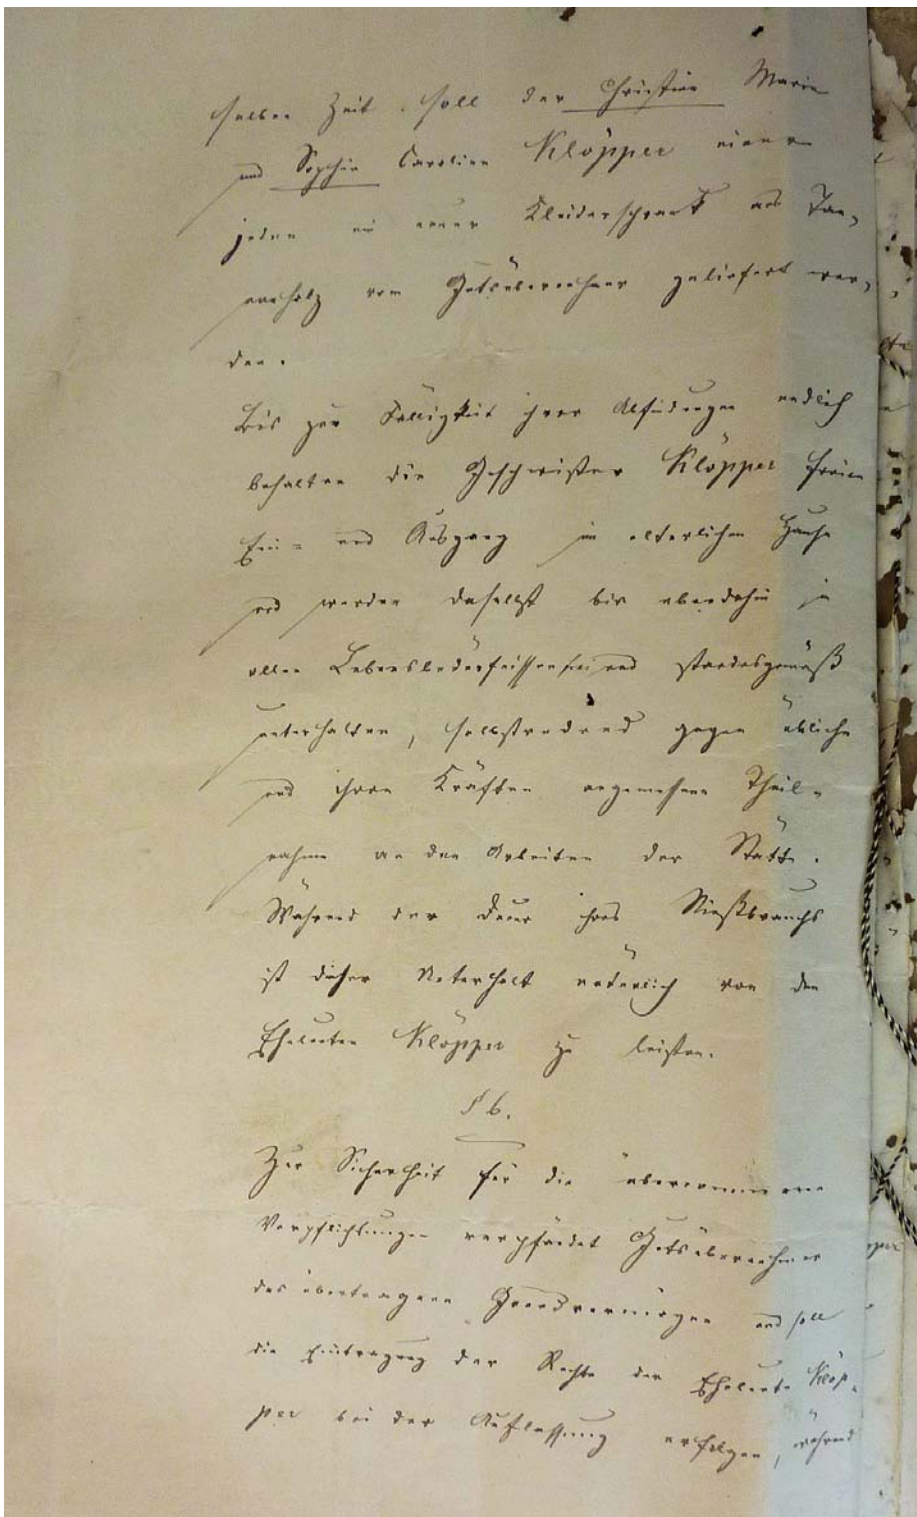 selben Zeit soll der Christine Marie
und Sophie Caroline Klöpper einem
jeden ein neuer Kleiderschrank aus Tan-
nenholz vom Gutsübernehmer geliefert wer-
den.
Bis zur Fälligkeit ihrer Abfindungen endlich
behalten die Geschwister Klöpper freien
Ein- und Ausgang im elterlichen Hause
und werden daselbst bis ebendahin in
allen Lebensbedürfnissen frei und standesgemäß
unterhalten, selbstredend gegen übliche
und ihren Kräften angemessene Theil-
nahme an den Arbeiten der Stätte.
Während der Dauer ihres Nießbrauchs
ist dieser Unterhalt natürlich von den
Eheleuten Klöpper zu leisten.
§ 6.
Zur Sicherheit für die übernommenen
Verpflichtungen verpfändet Gutsübernehmer
das übertragene Grundvermögen und soll
die Eintragung der Rechte der Eheleute Klöp-
per bei der Auflassung erfolgen, während